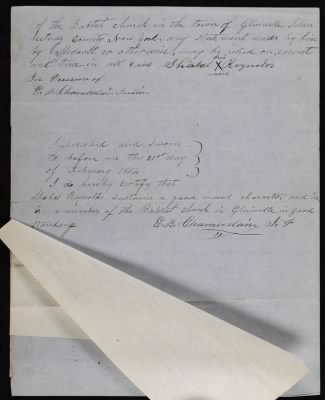 of the Babtist church in the town of Glenville Schen
ectady County New York. any statement made by him
by affidavit or otherwise, may be relied on, correct
and true in all
his
Shabal X Reynolds
mark
In Presence of
E. B. Chamberlain Justice
Subscribed and sworn
to before me this 21st day
of February 1854
I do hereby certify that
Shabal Reynolds sustains a good moral character and he
is a member of the Babtist church in Glenville in good
standing
E. B. Chamberlain J. P